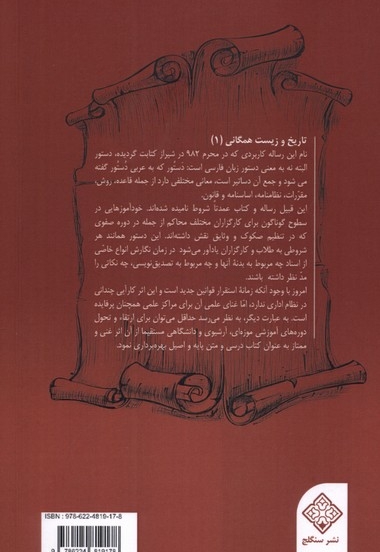 تاریخ و زیست همگانی (۱)
نام این رساله کاربردی که در محرم ۹۸۲ در شیراز کتابت گردیده، دستور
البته نه به معنی دستور زبان فارسی است: دَستُور که به عربی دُستُور گفته
می شود و جمع آن دساتیر است، معانی مختلفی دارد از جمله قاعده، روش،
مقرّرات، نظامنامه، اساسنامه و قانون.
این قبیل رساله و کتاب عمدتاً شروط نامیده شده‌اند. خودآموزهایی در
سطوح گوناگون برای کارگزاران مختلف محاکم از جمله در دوره صفوی
که در تنظیم صکوک و وثایق نقش داشته‌اند. این دستور همانند هر
شروطی به طلاب و کارگزاران یادآور می‌شود در زمان نگارش انواع خاصّی
از اسناد چه مربوط به بدنهٔ آنها و چه مربوط به تصدیق‌نویسی، چه نکاتی را
مدّ نظر داشته باشند.
امروز با وجود آنکه زمانهٔ استقرار قوانین جدید است و این اثر کارآیی چندانی
در نظام اداری ندارد، امّا غنای علمی آن برای مراکز علمی همچنان پرفایده
است. به عبارت دیگر، به نظر می‌رسد حداقل می‌توان برای ارتقاء و تحول
دوره‌های آموزشی موزه‌ای، آرشیوی و دانشگاهی مستقیما از آن اثر غنی و
ممتاز به عنوان کتاب درسی و متن پایه و اصیل بهره‌برداری نمود.
ISBN : 978-622-4819-17-8
9 786224 819178
نشر سنگلج